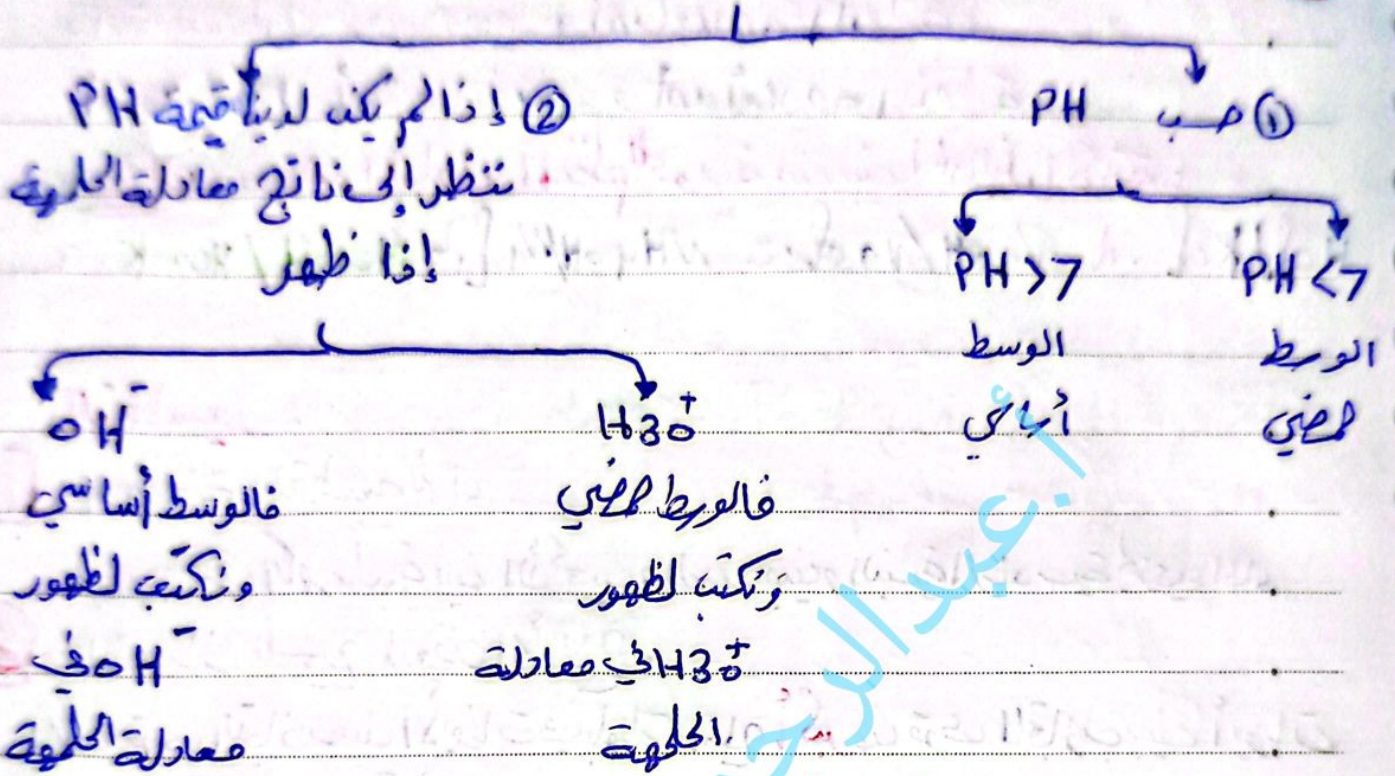 ① حسب PH
PH<7
الوسط
حمضي
PH>7
الوسط
أساسي
② إذا لم يكن لدينا قيمة PH
ننظر إلى ناتج معادلة الحلمهة
إذا ظهر
H3O+
فالوسط حمضي
ونكتب لظهور
H3O+ في معادلة
الحلمهة.
OH-
فالوسط أساسي
ونكتب لظهور
OH- في
معادلة الحلمهة
أ.عبدالرحـ